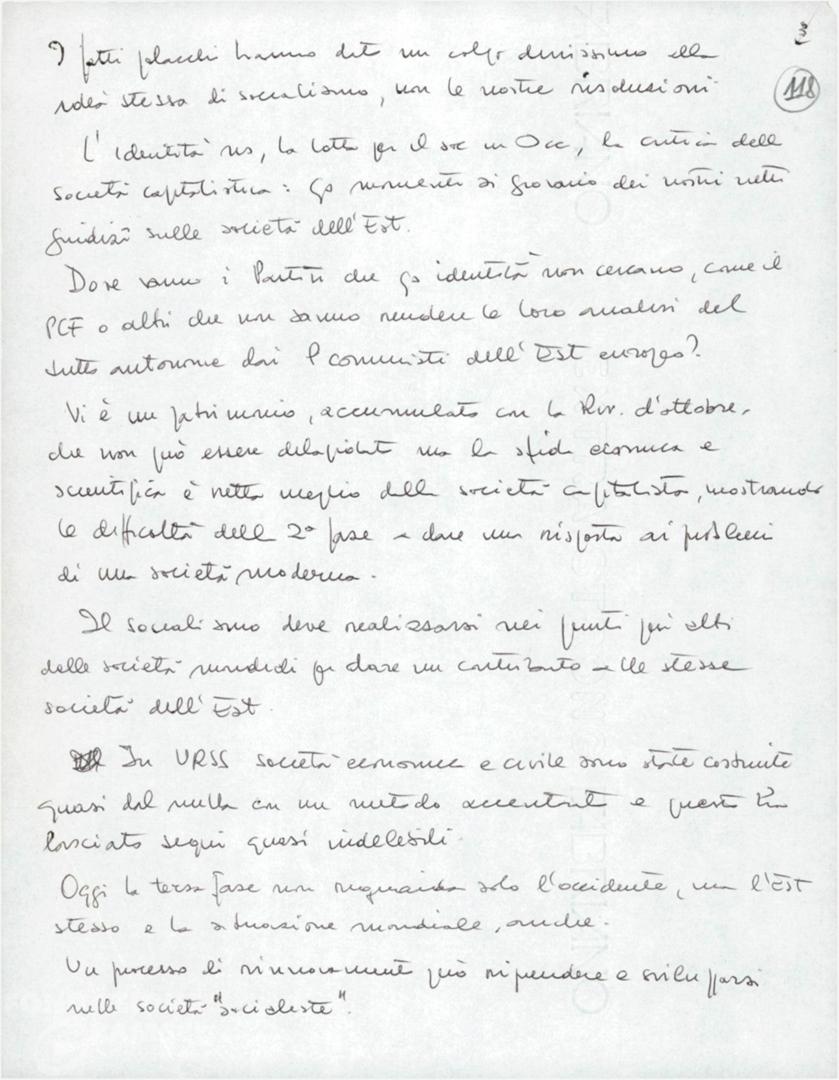 3
118
I fatti polacchi hanno dato un colpo durissimo alla
idea stessa di socialismo, non le nostre risoluzioni.
L'identità ns, la lotta per il soc in Occ, la critica della
società capitalistica: qs momenti si giovano dei nostri netti
giudizi sulle società dell'Est.
Dove vanno i Partiti che qs identità non cercano, come il
PCF o altri che non sanno rendere le loro analisi del
tutto autonome dai P comunisti dell'Est europeo?
Vi è un patrimonio, accumulato con la Riv. d'ottobre,
che non può essere dilapidato ma la sfida economica e
scientifica è retta meglio dalla società capitalista, mostrando
le difficoltà della 2ª fase a dare una risposta ai problemi
di una società moderna.
Il socialismo deve realizzarsi nei punti più alti
delle società mondiali per dare un contributo alle stesse
società dell'Est.
In URSS società economica e civile sono state costruite
quasi dal nulla con un metodo accentrato e questo ha
lasciato segni quasi indelebili.
Oggi la terza fase non riguarda solo l'occidente, ma l'Est
stesso e la situazione mondiale, anche.
Un processo di rinnovamento può riprendere e svilupparsi
nelle società "socialiste".